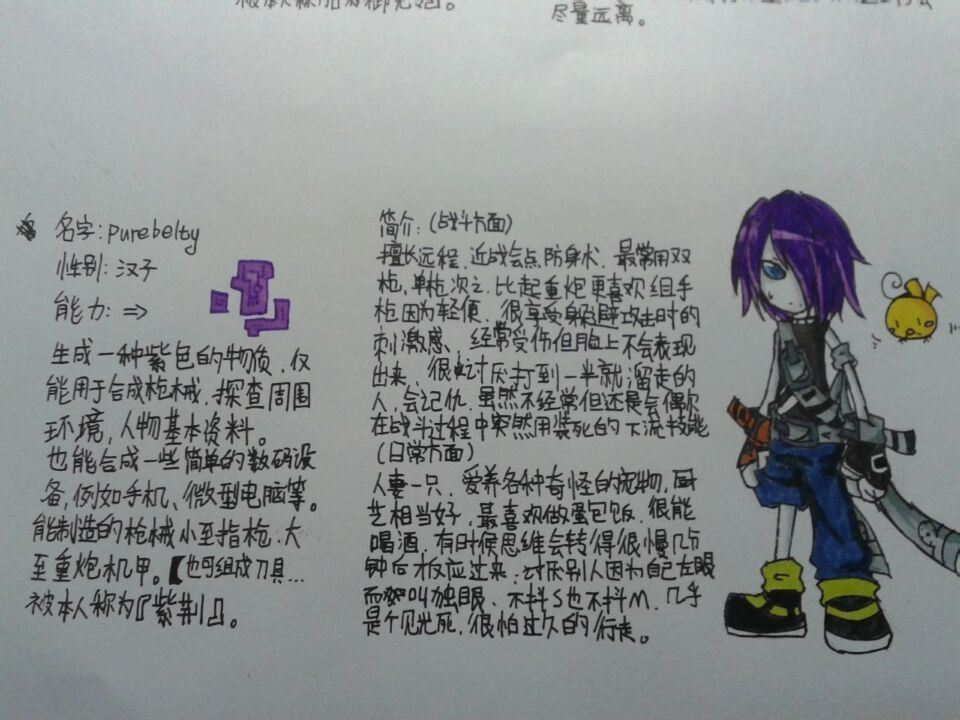 尽量远离。
名字:purebelty
性别:汉子
能力:=>
生成一种紫色的物质,仅
能用于合成枪械,探查周围
环境,人物基本资料。
也能合成一些简单的数码设
备,例如手机、微型电脑等。
能制造的枪械小至指枪,大
至重炮机甲。【也可组成刀具...
被本人称为『紫荆』。
简介:(战斗方面)
擅长远程,近战会点防身术,最常用双
枪,单枪次之,比起重炮更喜欢组手
枪因为轻便,很享受躲避攻击时的
刺激感、经常受伤但脸上不会表现
出来,很讨厌打到一半就溜走的
人,会记仇,虽然不经常但还是会偶尔
在战斗过程中突然用装死的下流技能
(日常方面)
人妻一只,爱养各种奇怪的宠物,厨
艺相当好,最喜欢做蛋包饭,很能
喝酒,有时候思维会转得很慢几分
钟后才反应过来,讨厌别人因为自己左眼
而叫独眼、不抖S也不抖M,几乎
是个见光死,很怕过久的行走。